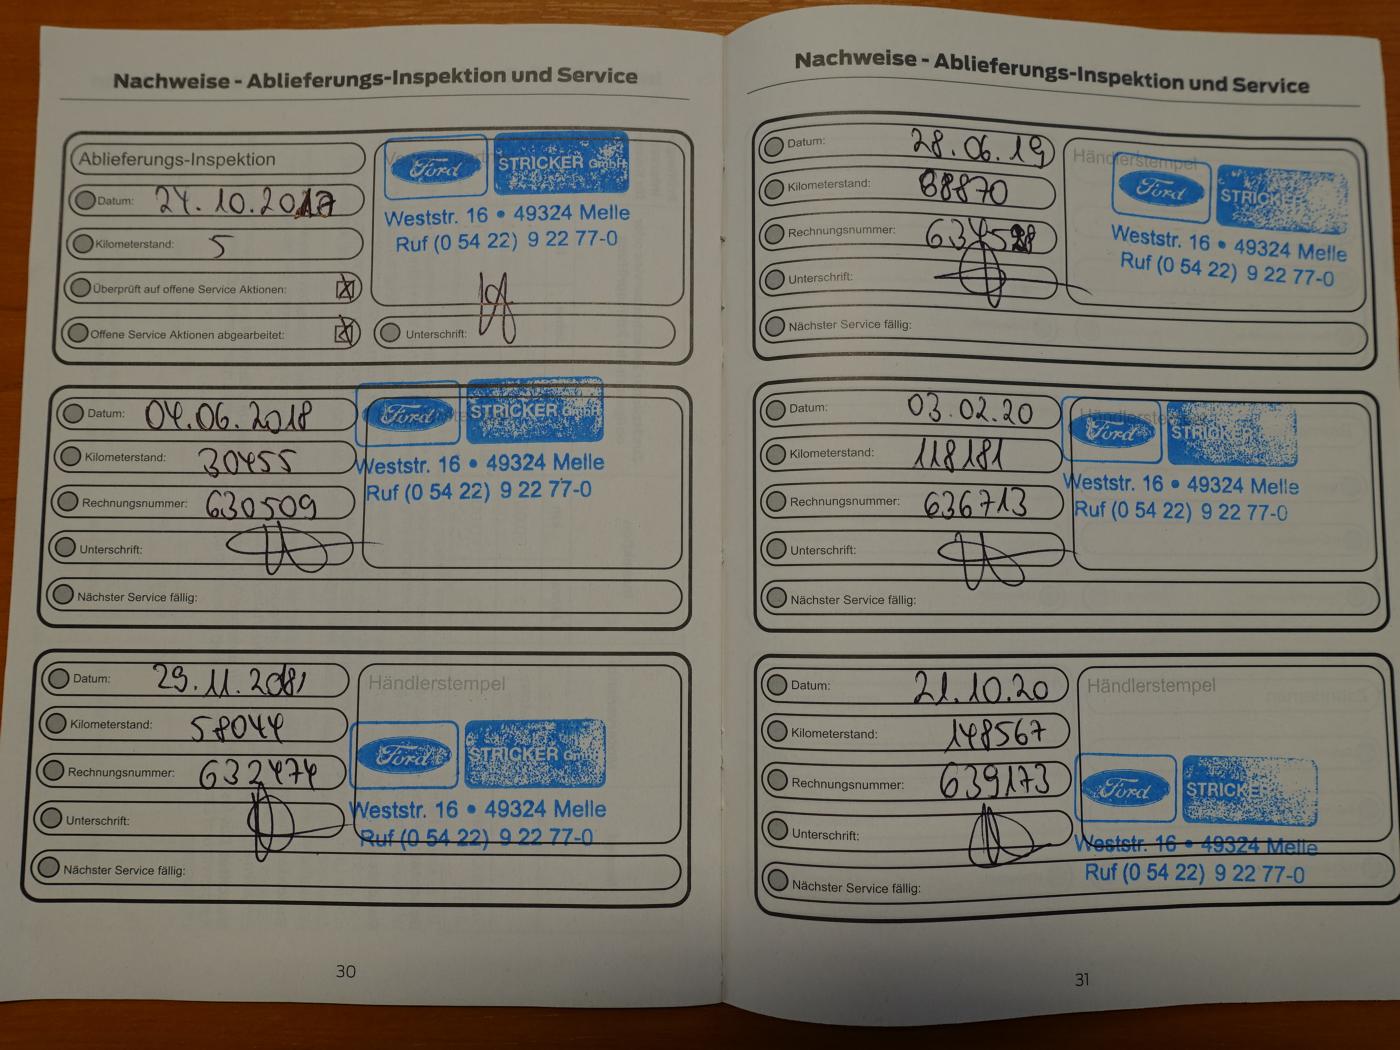 Nachweise - Ablieferungs-Inspektion und Service
Ablieferungs-Inspektion
Datum: 24.10.2017
Kilometerstand: 5
Überprüft auf offene Service Aktionen: X
Offene Service Aktionen abgearbeitet: X
Ford STRICKER GmbH
Weststr. 16 • 49324 Melle
Ruf (0 54 22) 9 22 77-0
Unterschrift:
Datum: 04.06.2018
Kilometerstand: 30455
Rechnungsnummer: 630509
Unterschrift:
Nächster Service fällig:
Ford STRICKER GmbH
Weststr. 16 • 49324 Melle
Ruf (0 54 22) 9 22 77-0
Datum: 29.11.2018
Kilometerstand: 58044
Rechnungsnummer: 632474
Unterschrift:
Nächster Service fällig:
Händlerstempel
Ford STRICKER GmbH
Weststr. 16 • 49324 Melle
Ruf (0 54 22) 9 22 77-0
30
Nachweise - Ablieferungs-Inspektion und Service
Datum: 28.06.19
Kilometerstand: 88870
Rechnungsnummer:
Unterschrift:
Nächster Service fällig:
Händlerstempel
Ford STRICKER
Weststr. 16 • 49324 Melle
Ruf (0 54 22) 9 22 77-0
Datum: 03.02.20
Kilometerstand: 118181
Rechnungsnummer: 636713
Unterschrift:
Nächster Service fällig:
Händlerstempel
Ford STRICKER
Weststr. 16 • 49324 Melle
Ruf (0 54 22) 9 22 77-0
Datum: 21.10.20
Kilometerstand: 148567
Rechnungsnummer: 639173
Unterschrift:
Nächster Service fällig:
Händlerstempel
Ford STRICKER
Weststr. 16 • 49324 Melle
Ruf (0 54 22) 9 22 77-0
31